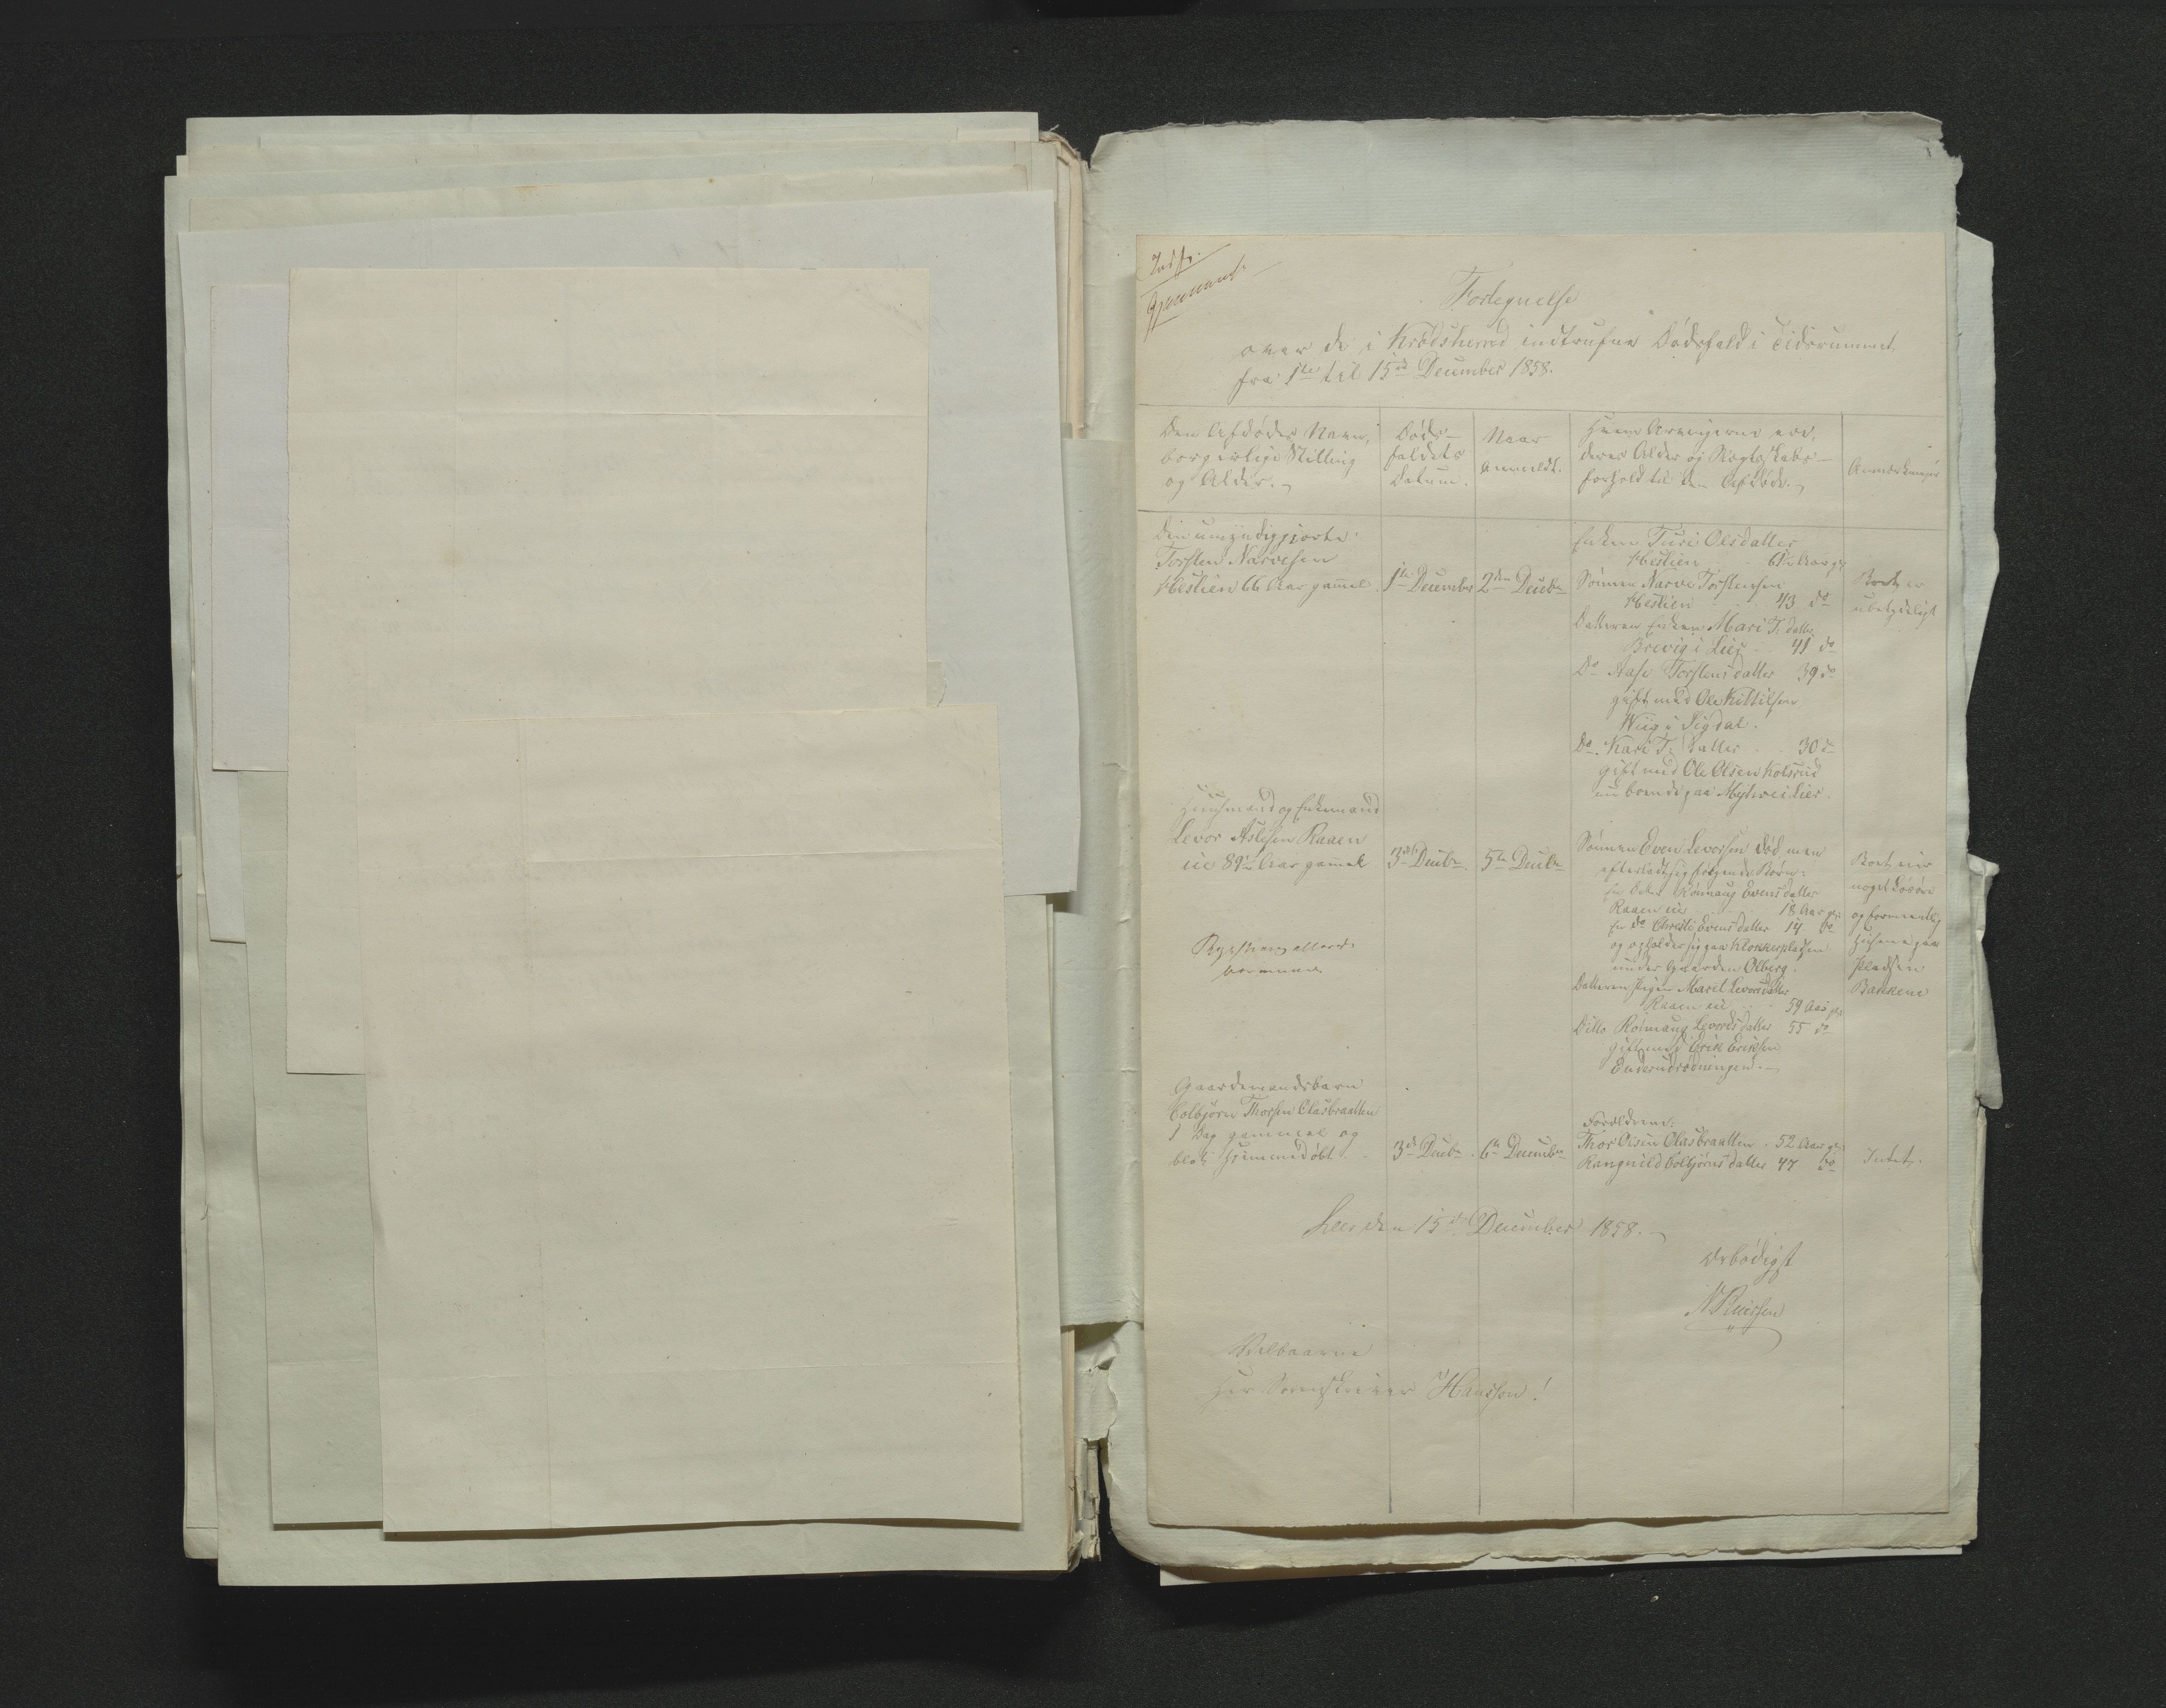 Fortegnelse
over de i Krødsherred indtrufne Dødsfald i Tidsrummet
fra 1ste til 15de December 1858.
Den Afdødes Navn,
borgerlige Stilling
og Alder.
Døds-
faldets
Datum.
Naar
anmeldt.
Hvem Arvingerne ere,
deres Alder og Slægtskabs-
forhold til den Afdøde.
Anmærkninger
Den umyndiggjorte
Torsten Narvesen
Hestlien 66 Aar gammel.
1ste December
2den Decbr
Enken Turi Olsdatter
Hestlien 61½ Aar gl.
Sønnen Narve Torstensen
Hestlien 43 do
Datteren Enken Mari T. datter
Brevig i Lier 41 do
Do Aase Torstensdatter 39 do
gift med Ole Kittilsen
Wiig i Sigdal.
Do Kari T. datter 30 do
gift med Ole Olsen Kolsrud
nu boende paa Myhre i Lier.
Boet er
ubetydeligt
Huusmand og Enkemand
Levor Aslesen Raaen
eie 89½ Aar gammel
3die Decbr
5te Decbr
Sønnen Even Levorsen død men
efterladt sig følgende Børn:
En Datter Rønnaug Evensdatter
Raaen eie 18 Aar gl.
En do Christi Evensdatter 14 do
og opholder sig paa Klokkerpladsen
under Gaarden Olberg.
Datteren Pigen Marit Levorsdatter
Raaen eie 59 Aar gl.
Ditto Rønnaug Levordsdatter 55 do
gift med Erik Eriksen
Enderudrødningen.
Boet eier
noget Løsøre
og formentlig
Husene paa
Pladsen
Bakkene
Gaardmandsbarn
Colbjørn Thorsen Olasbraatten
1 Dag gammel og
blot hjemmedøbt
3die Decbr
6te December
Forældrene:
Thor Olsen Olasbraatten 52 Aar gl.
Rangnild Colbjørnsdatter 47 do
Intet.
Leer den 15de December 1858.
Ærbødigst
Velbaarne
Herr Sorenskriver Hansson!